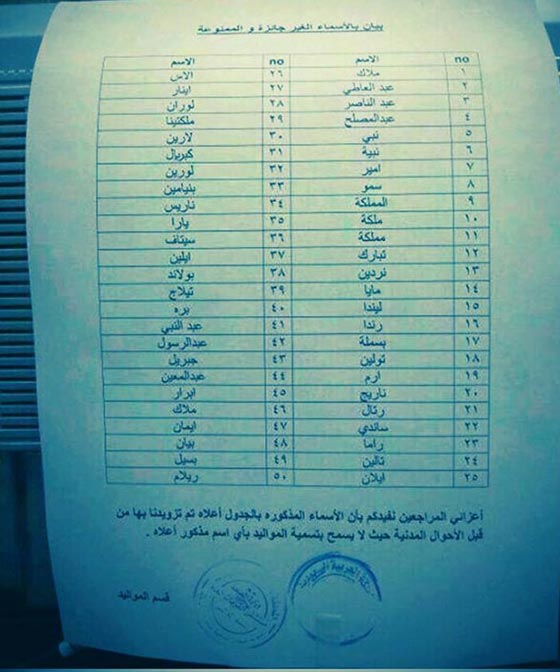 بيان بالأسماء الغير جائزة و الممنوعة
no الاسم no الاسم
١ ملاك ٢٦ الاس
٢ عبد العاطي ٢٧ اينار
٣ عبد الناصر ٢٨ لوران
٤ عبدالمصلح ٢٩ ملكتينا
٥ نبي ٣٠ لارين
٦ نبية ٣١ كبريال
٧ امير ٣٢ لورين
٨ سمو ٣٣ بنيامين
٩ المملكة ٣٤ ناريس
١٠ ملكة ٣٥ يارا
١١ مملكة ٣٦ سيتاف
١٢ تبارك ٣٧ ايلين
١٣ نردين ٣٨ بولاند
١٤ مايا ٣٩ تيلاج
١٥ ليندا ٤٠ بره
١٦ رندا ٤١ عبد النبي
١٧ بسملة ٤٢ عبدالرسول
١٨ تولين ٤٣ جبريل
١٩ أرم ٤٤ عبدالمعين
٢٠ ناريج ٤٥ ابرار
٢١ رتال ٤٦ ملاك
٢٢ ساندي ٤٧ ايمان
٢٣ راما ٤٨ بيان
٢٤ تالين ٤٩ بسيل
٢٥ ايلان ٥٠ ريلام
أعزاني المراجعين نفيدكم بأن الأسماء المذكوره بالجدول أعلاه تم تزويدنا بها من
قبل الأحوال المدنية حيث لا يسمح بتسمية المواليد بأي اسم مذكور أعلاه .
قسم المواليد